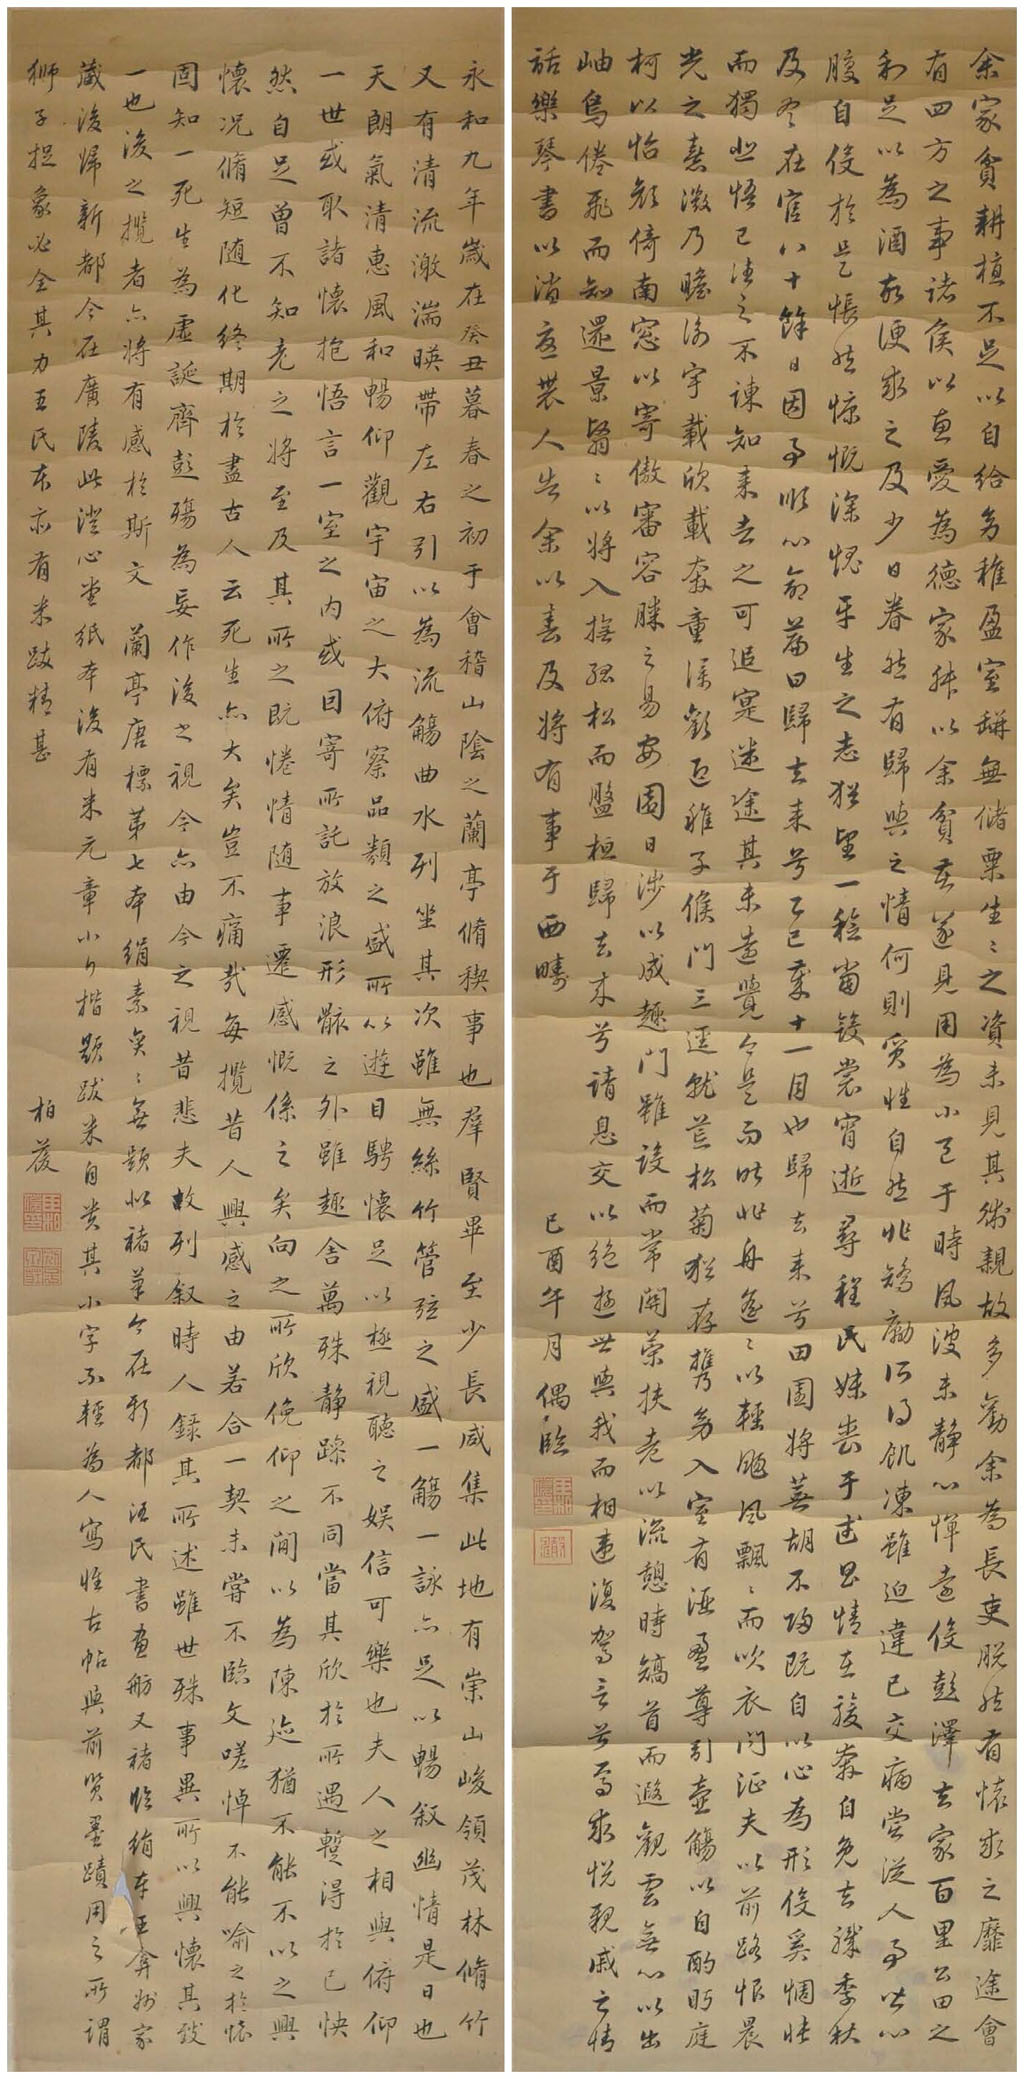 余家貧耕植不足以自給幼稚盈室缾無儲粟生〻之資未見其術親故多勸余為長吏脫然有懷求之靡途會
有四方之事諸侯以惠愛為德家叔以余貧苦遂見用為小邑于時風波未靜心憚遠役彭澤去家百里公田之
利足以為酒故便求之及少日眷然有歸與之情何則質性自然非矯勵所得飢凍雖迫違己交病嘗從人事皆口
腹自役於是悵然慷慨深愧平生之志猶望一稔當斂裳宵逝尋程氏妹喪于武昌情在駿奔自免去職季秋
及冬在官八十餘日因事順心命篇曰歸去來兮乙巳歲十一月也歸去來兮田園將蕪胡不歸既自以心為形役奚惆悵
而獨悲悟已往之不諫知來者之可追寔迷途其未遠覺今是而昨非舟遙〻以輕颺風飄〻而吹衣問征夫以前路恨晨
光之熹微乃瞻衡宇載欣載奔童僕歡迎稚子候門三逕就荒松菊猶存攜幼入室有酒盈尊引壺觴以自酌眄庭
柯以怡顏倚南窓以寄傲審容膝之易安園日涉以成趣門雖設而常關策扶老以流憩時矯首而遐觀雲無心以出
岫鳥倦飛而知還景翳〻以將入撫孤松而盤桓歸去來兮請息交以絕遊世與我而相違復駕言兮焉求悅親戚之情
話樂琴書以消憂農人告余以春及將有事于西疇 己酉午月 偶臨
永和九年歲在癸丑暮春之初于會稽山陰之蘭亭脩稧事也羣賢畢至少長咸集此地有崇山峻領茂林脩竹
又有清流激湍暎帶左右引以為流觴曲水列坐其次雖無絲竹管弦之盛一觴一詠亦足以暢叙幽情是日也
天朗氣清惠風和暢仰觀宇宙之大俯察品類之盛所以遊目騁懷足以極視聽之娛信可樂也夫人之相與俯仰
一世或取諸懷抱悟言一室之內或因寄所託放浪形骸之外雖趣舍萬殊靜躁不同當其欣於所遇蹔得於己快
然自足曾不知老之將至及其所之既惓情随事遷感慨係之矣向之所欣俛仰之間以為陳迹猶不能不以之興
懷况脩短随化終期於盡古人云死生亦大矣豈不痛哉每攬昔人興感之由若合一契未嘗不臨文嗟悼不能喻之於懷
固知一死生為虛誕齊彭殤為妄作後之視今亦由今之視昔悲夫故列叙時人錄其所述雖世殊事異所以興懷其致
一也後之攬者亦將有感於斯文 蘭亭唐標第七本絹素奕〻無題似褚筆今在新都汪氏書畫舫又褚臨絹本王弇州家
藏後歸新都今在廣陵此澄心堂紙本後有米元章小行楷題跋米自貴其小字不輕為人寫惟古帖與前賢墨蹟用之所謂
獅子捉象必全其力王氏本亦有米跋精甚 柏葰